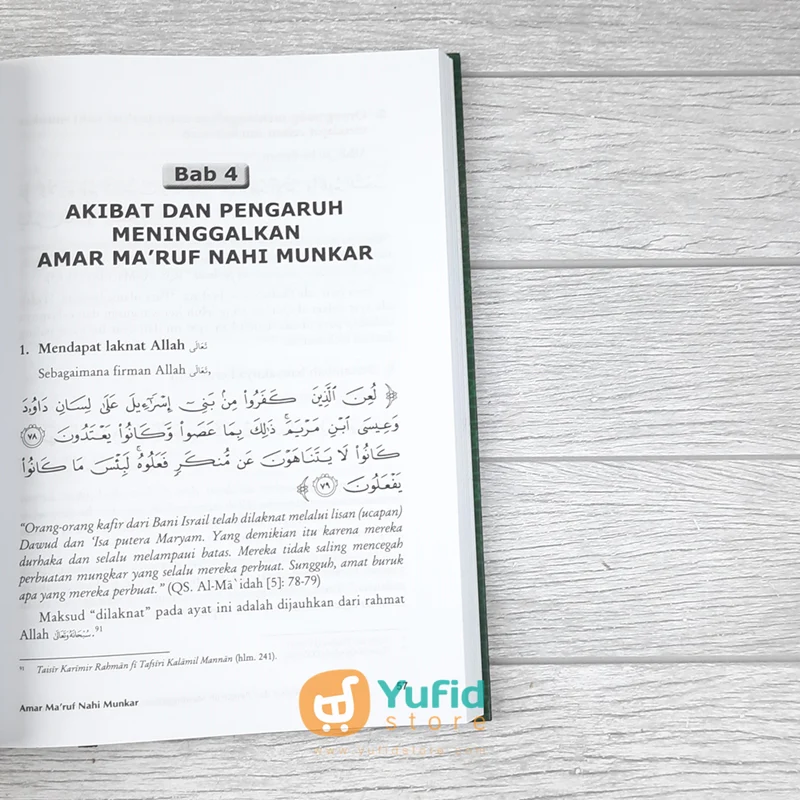 Bab 4
AKIBAT DAN PENGARUH
MENINGGALKAN
AMAR MA'RUF NAHI MUNKAR
1. Mendapat laknat Allah تَعَالَى
Sebagaimana firman Allah تَعَالَى,
﴿ لُعِنَ ٱلَّذِينَ كَفَرُوا۟ مِنۢ بَنِىٓ إِسْرَٰٓءِيلَ عَلَىٰ لِسَانِ دَاوُۥدَ
وَعِيسَى ٱبْنِ مَرْيَمَ ۚ ذَٰلِكَ بِمَا عَصَوا۟ وَّكَانُوا۟ يَعْتَدُونَ ٧٨
كَانُوا۟ لَا يَتَنَاهَوْنَ عَن مُّنكَرٍ فَعَلُوهُ ۚ لَبِئْسَ مَا كَانُوا۟
يَفْعَلُونَ ٧٩ ﴾
"Orang-orang kafir dari Bani Israil telah dilaknat melalui lisan (ucapan)
Dawud dan 'Isa putera Maryam. Yang demikian itu karena mereka
durhaka dan selalu melampaui batas. Mereka tidak saling mencegah
perbuatan mungkar yang selalu mereka perbuat. Sungguh, amat buruk
apa yang mereka perbuat." (QS. Al-Mā`idah [5]: 78-79)
Maksud "dilaknat" pada ayat ini adalah dijauhkan dari rahmat
Allah سُبْحَانَهُ وَتَعَالَى.91
91 Taisīr Karīmir Rahmān fī Tafsīri Kalāmil Mannān (hlm. 241).
57
Amar Ma'ruf Nahi Munkar
Yufid
store
www.yufidstore.com